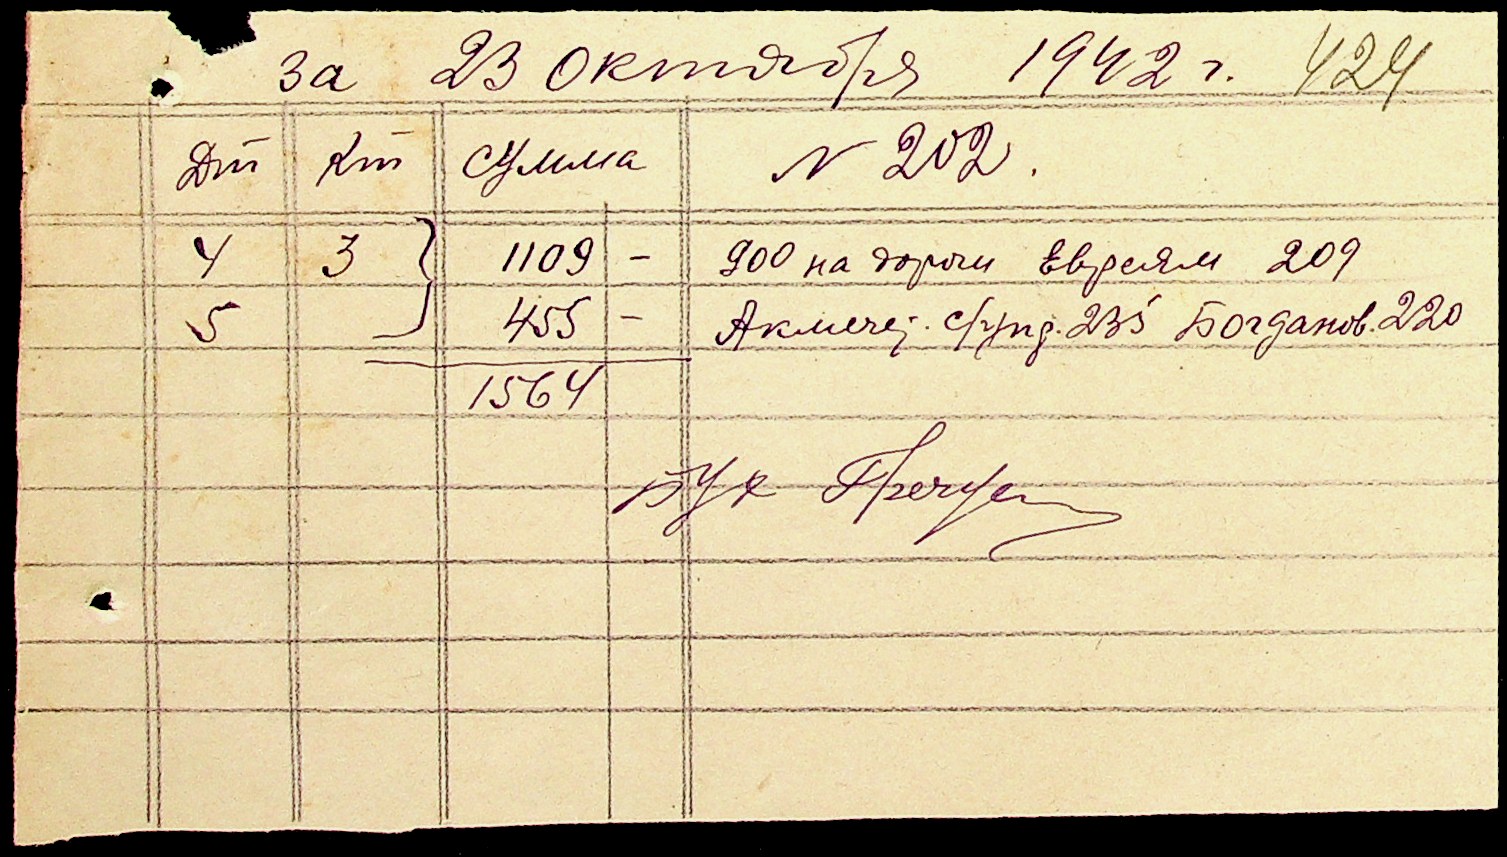 за 23 октября 1942 г. 424
Дт Кт сумма N 202.
4 3 1109 - 900 на дороги Евреям 209
5 455 - Акмечет. с/упр. 235 Богданов. 220
1564
Бух